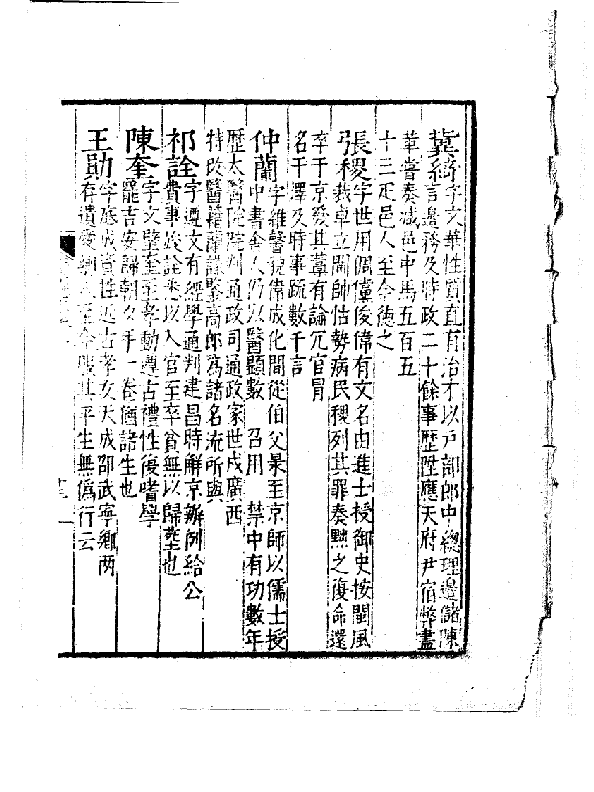 冀綺字文華性質直有治才以戶部郎中總理邊儲陳
言邊務及時政二十餘事歷陞應天府尹宿弊盡
革嘗奏減邑中馬五百五
十二疋邑人至今德之
張稷字世用倜儻俊偉有文名由進士授御史按閩風
裁卓立閫帥怙勢病民稷列其罪奏黜之復命還
卒于京篋其藁有論冗官冒
名干澤及時事疏數千言
仲蘭字維馨貌偉成化間從伯父杲至京師以儒士授
中書舍人仍以醫顯數 召用 禁中有功數年
歷太醫院院判通政司通政家世戍廣西
特改醫籍蘭謙慤高郎為諸名流所與
祁詮字遵文有經學通判建昌時解京辦例給公
費事竣詮悉以入官至卒貧無以歸塟也
陳奎字文璧奎至孝動遵古禮性復嗜學
罷吉安歸朝夕手一卷猶諸生也
王勛字懋成資性近古孝友天成邵武寧鄉兩
存遺愛鄉人至今嘆其平生無僞行云